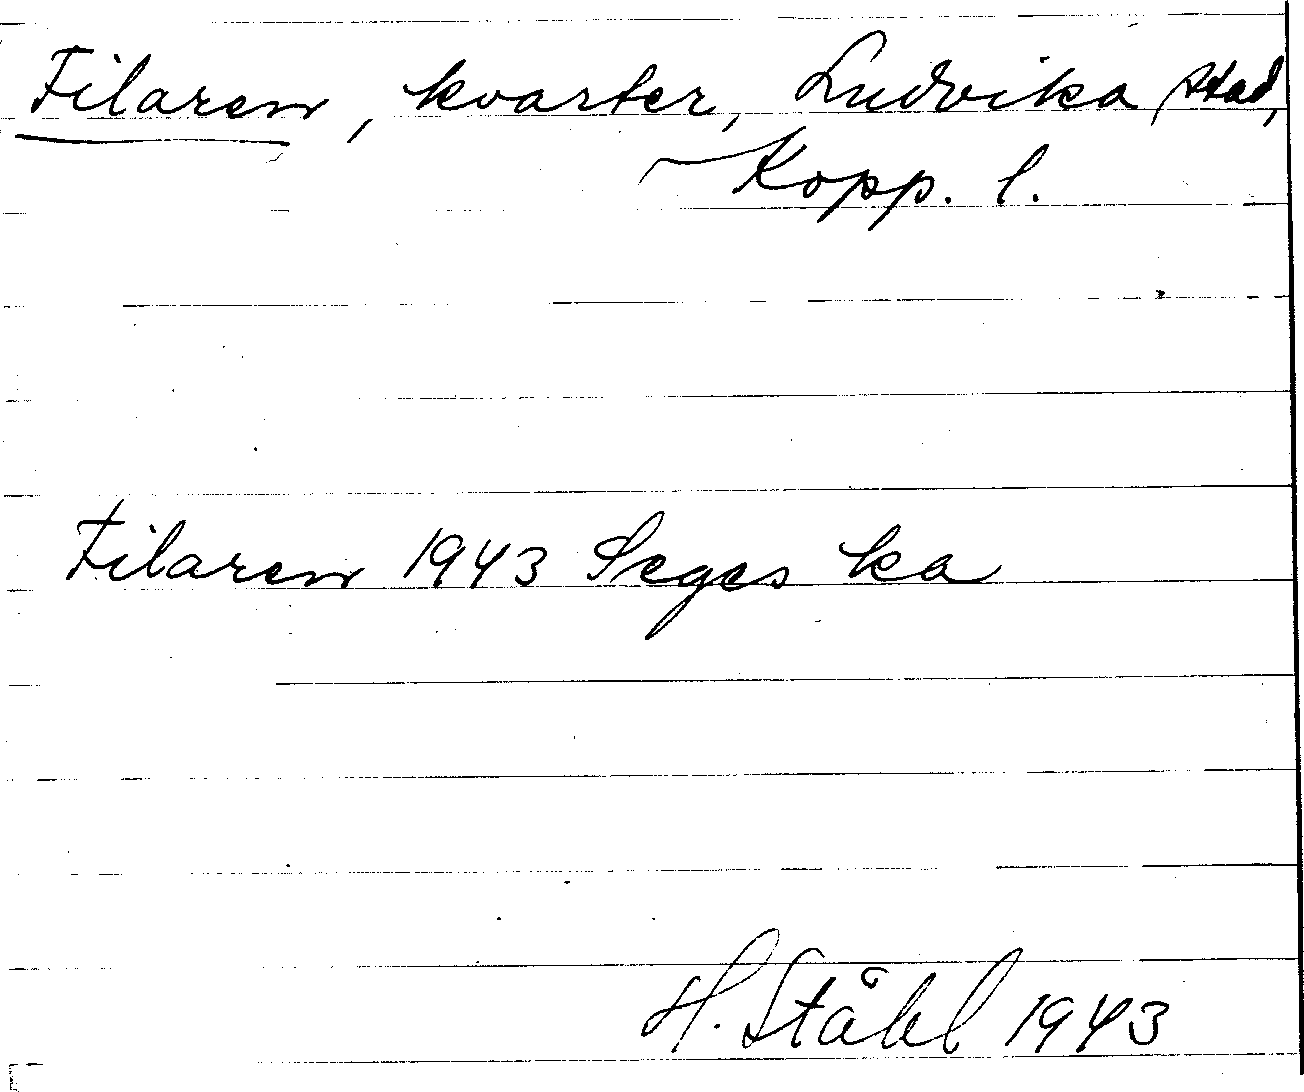 Filaren, kvarter, Ludvika stad,
Kopp. l.
Filaren 1943 Seges ka
H. Ståhl 1943